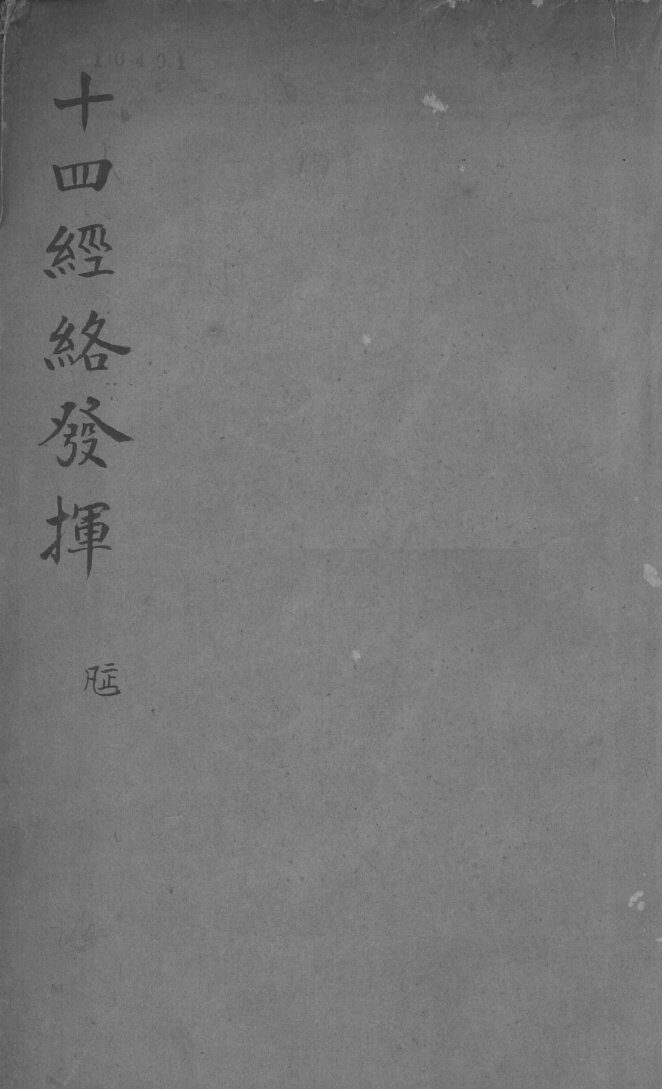 10401
十四經絡發揮